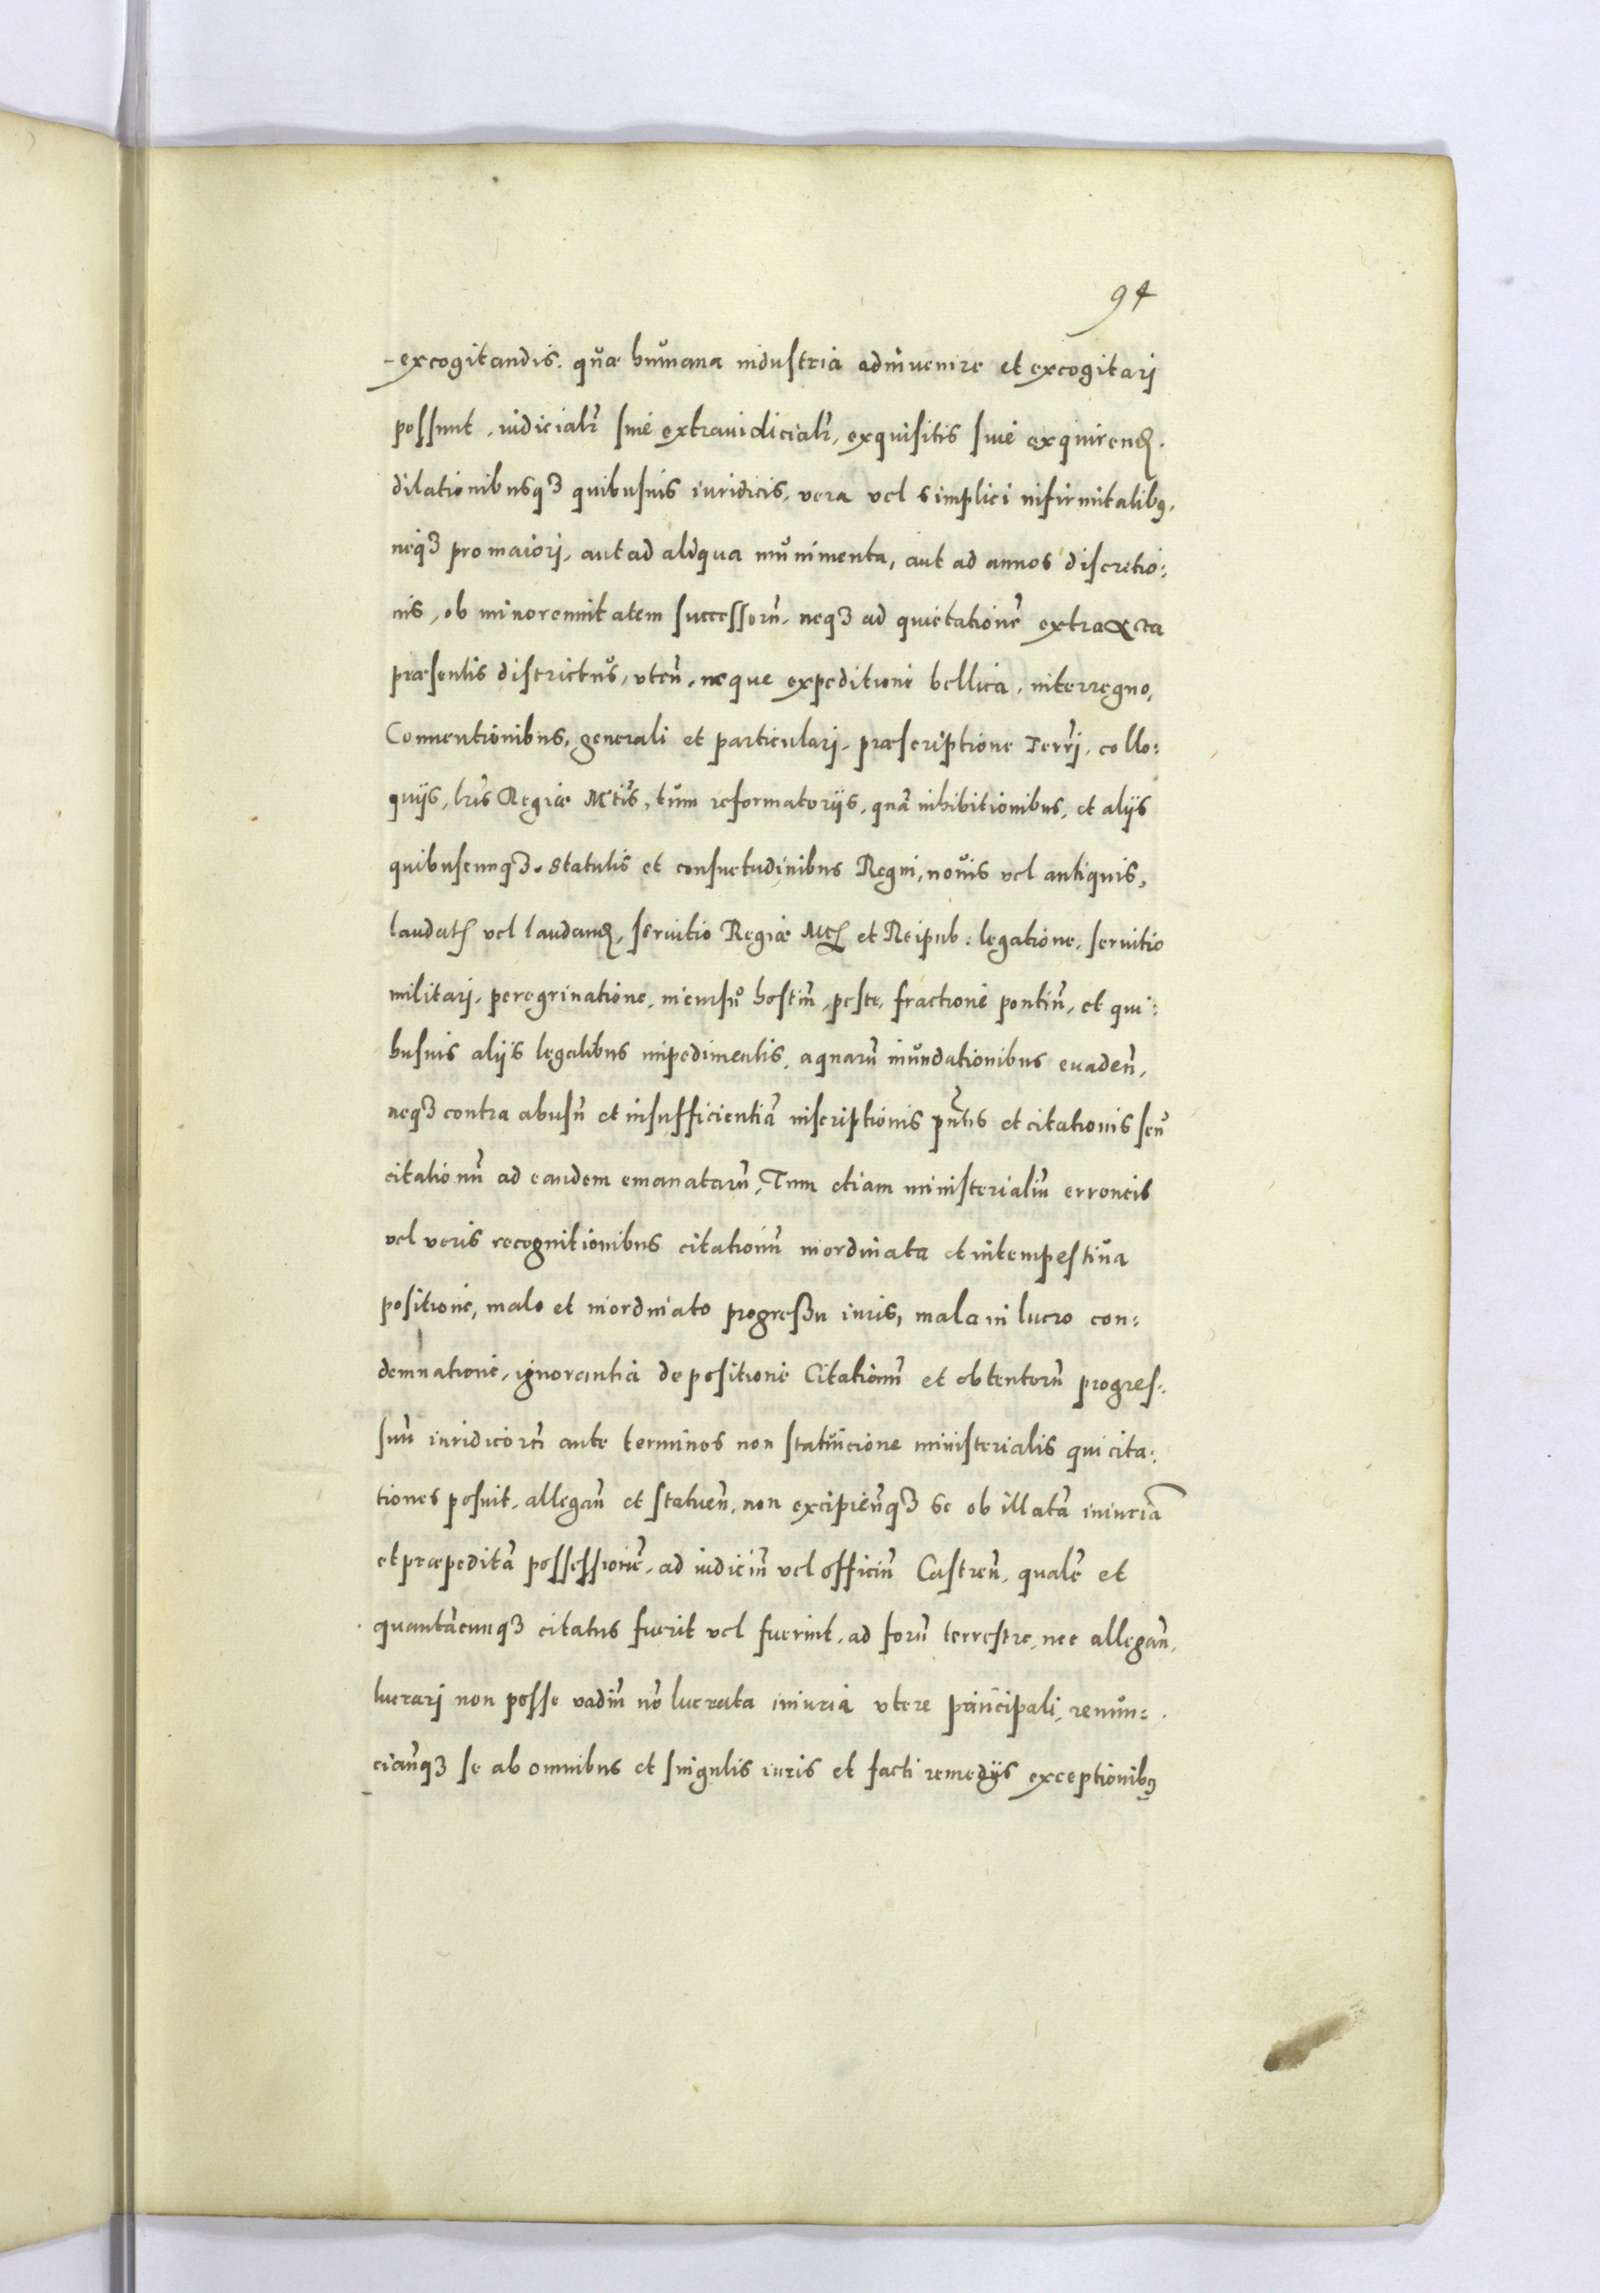 94
-excogitandis. quæ humana industria adinuenire et excogitarj
possunt, iudicialr̃ siue extraiudicialr̃, exquisitis siue exquirend.
dilationibusqꝫ quibusuis iuridicis, vera vel simplici infirmitatibꝫ,
neqꝫ pro maiorj, aut ad aliqua munimenta, aut ad annos discretio:
nis, ob minorennitatem successorũ, neqꝫ ad quietationẽ extra
præsentis districtus, vten̄, neque expeditione bellica, interregno,
Conuentionibus, generali et particularj, præscriptione Terrj, collo:
quijs, lr̃is Regiæ Mtis̃, tum reformatorijs, quã inhibitionibus, et alijs
quibuscunqꝫ, statutis et consuetudinibus Regni, nouis vel antiquis,
laudat vel laudand, seruitio Regiæ Mt et Reipub: legatione, seruitio
militarj, peregrinatione, incursu hostiũ, peste, fractione pontiũ, et qui:
busuis alijs legalibus impedimentis, aquarũ inundationibus euaden̄,
neqꝫ contra abusũ et insufficientiã inscriptionis pñtis et citationis seu
citationũ ad eandem emanatarũ, Tum etiam ministerialiũ erroneis
vel veris recognitionibus citationũ inordinata et intempestiua
positione, malo et inordinato progreßu iuris, mala in lucro con:
demnatione, ignorantia de positione Citationũ et obtentorũ progres:
suũ iuridicorũ ante terminos non statuicione ministerialis qui cita:
tiones posuit, allegan̄ et statuen̄, non excipien̄qꝫ se ob illatã iniuriã
et præpeditã possessionẽ, ad iudiciũ vel officiũ Castren̄, qualẽ et
quantãcunqꝫ citatus fuerit vel fuerint, ad forũ terrestre, nec allegan̄,
lucrarj non posse vadiũ nõ lucrata iniuria vtere principali, renun:
cian̄qꝫ se ab omnibus et singulis iuris et facti remedijs exceptionibꝫ